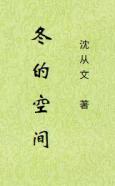 冬的空间
沈从文 著